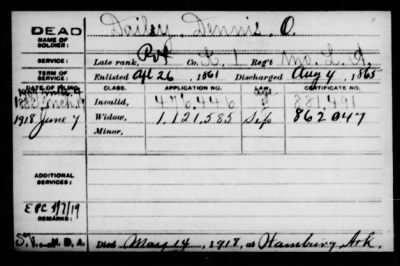 DEAD
NAME OF SOLDIER:
Dailey, Dennis O.
SERVICE:
Late rank, Pvt Co. G. 1 Reg't Mo. L. A.
TERM OF SERVICE:
Enlisted Apl 26, 1861 Discharged Aug 4, 1865
DATE OF FILING. CLASS. APPLICATION NO. LAW. CERTIFICATE NO.
Invalid, 476,446 881,491
1918 June 7 Widow, 1,121,585 Sep 862047
Minor,
ADDITIONAL SERVICES:
EPC 9/7/19
REMARKS:
Died May 14, 1918, at Hamburg Ark.